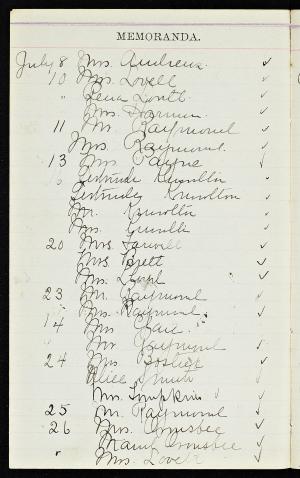 MEMORANDA.
July 8 Mrs. Andrews
10 Mrs. Lovell
" Lena Lovett
Mrs.
11 Mr. Raymond
Mrs. Raymond.
13 Mrs Payne
Gertrude Knowlton
Gertrudes Knowlton
Mr. Knowlton
Mrs.
20 Mrs. Farwell
Mrs. Brett
Mrs. Lloyd
23 Mr. Raymond
Mrs. Raymond
14 Mrs
Mr Raymond
24 Mrs
Alice Smith
Mrs. Tompkins
25 Mr. Raymond
26 Mrs. Ormsbee
Ormsbee
" Mrs. Lovell